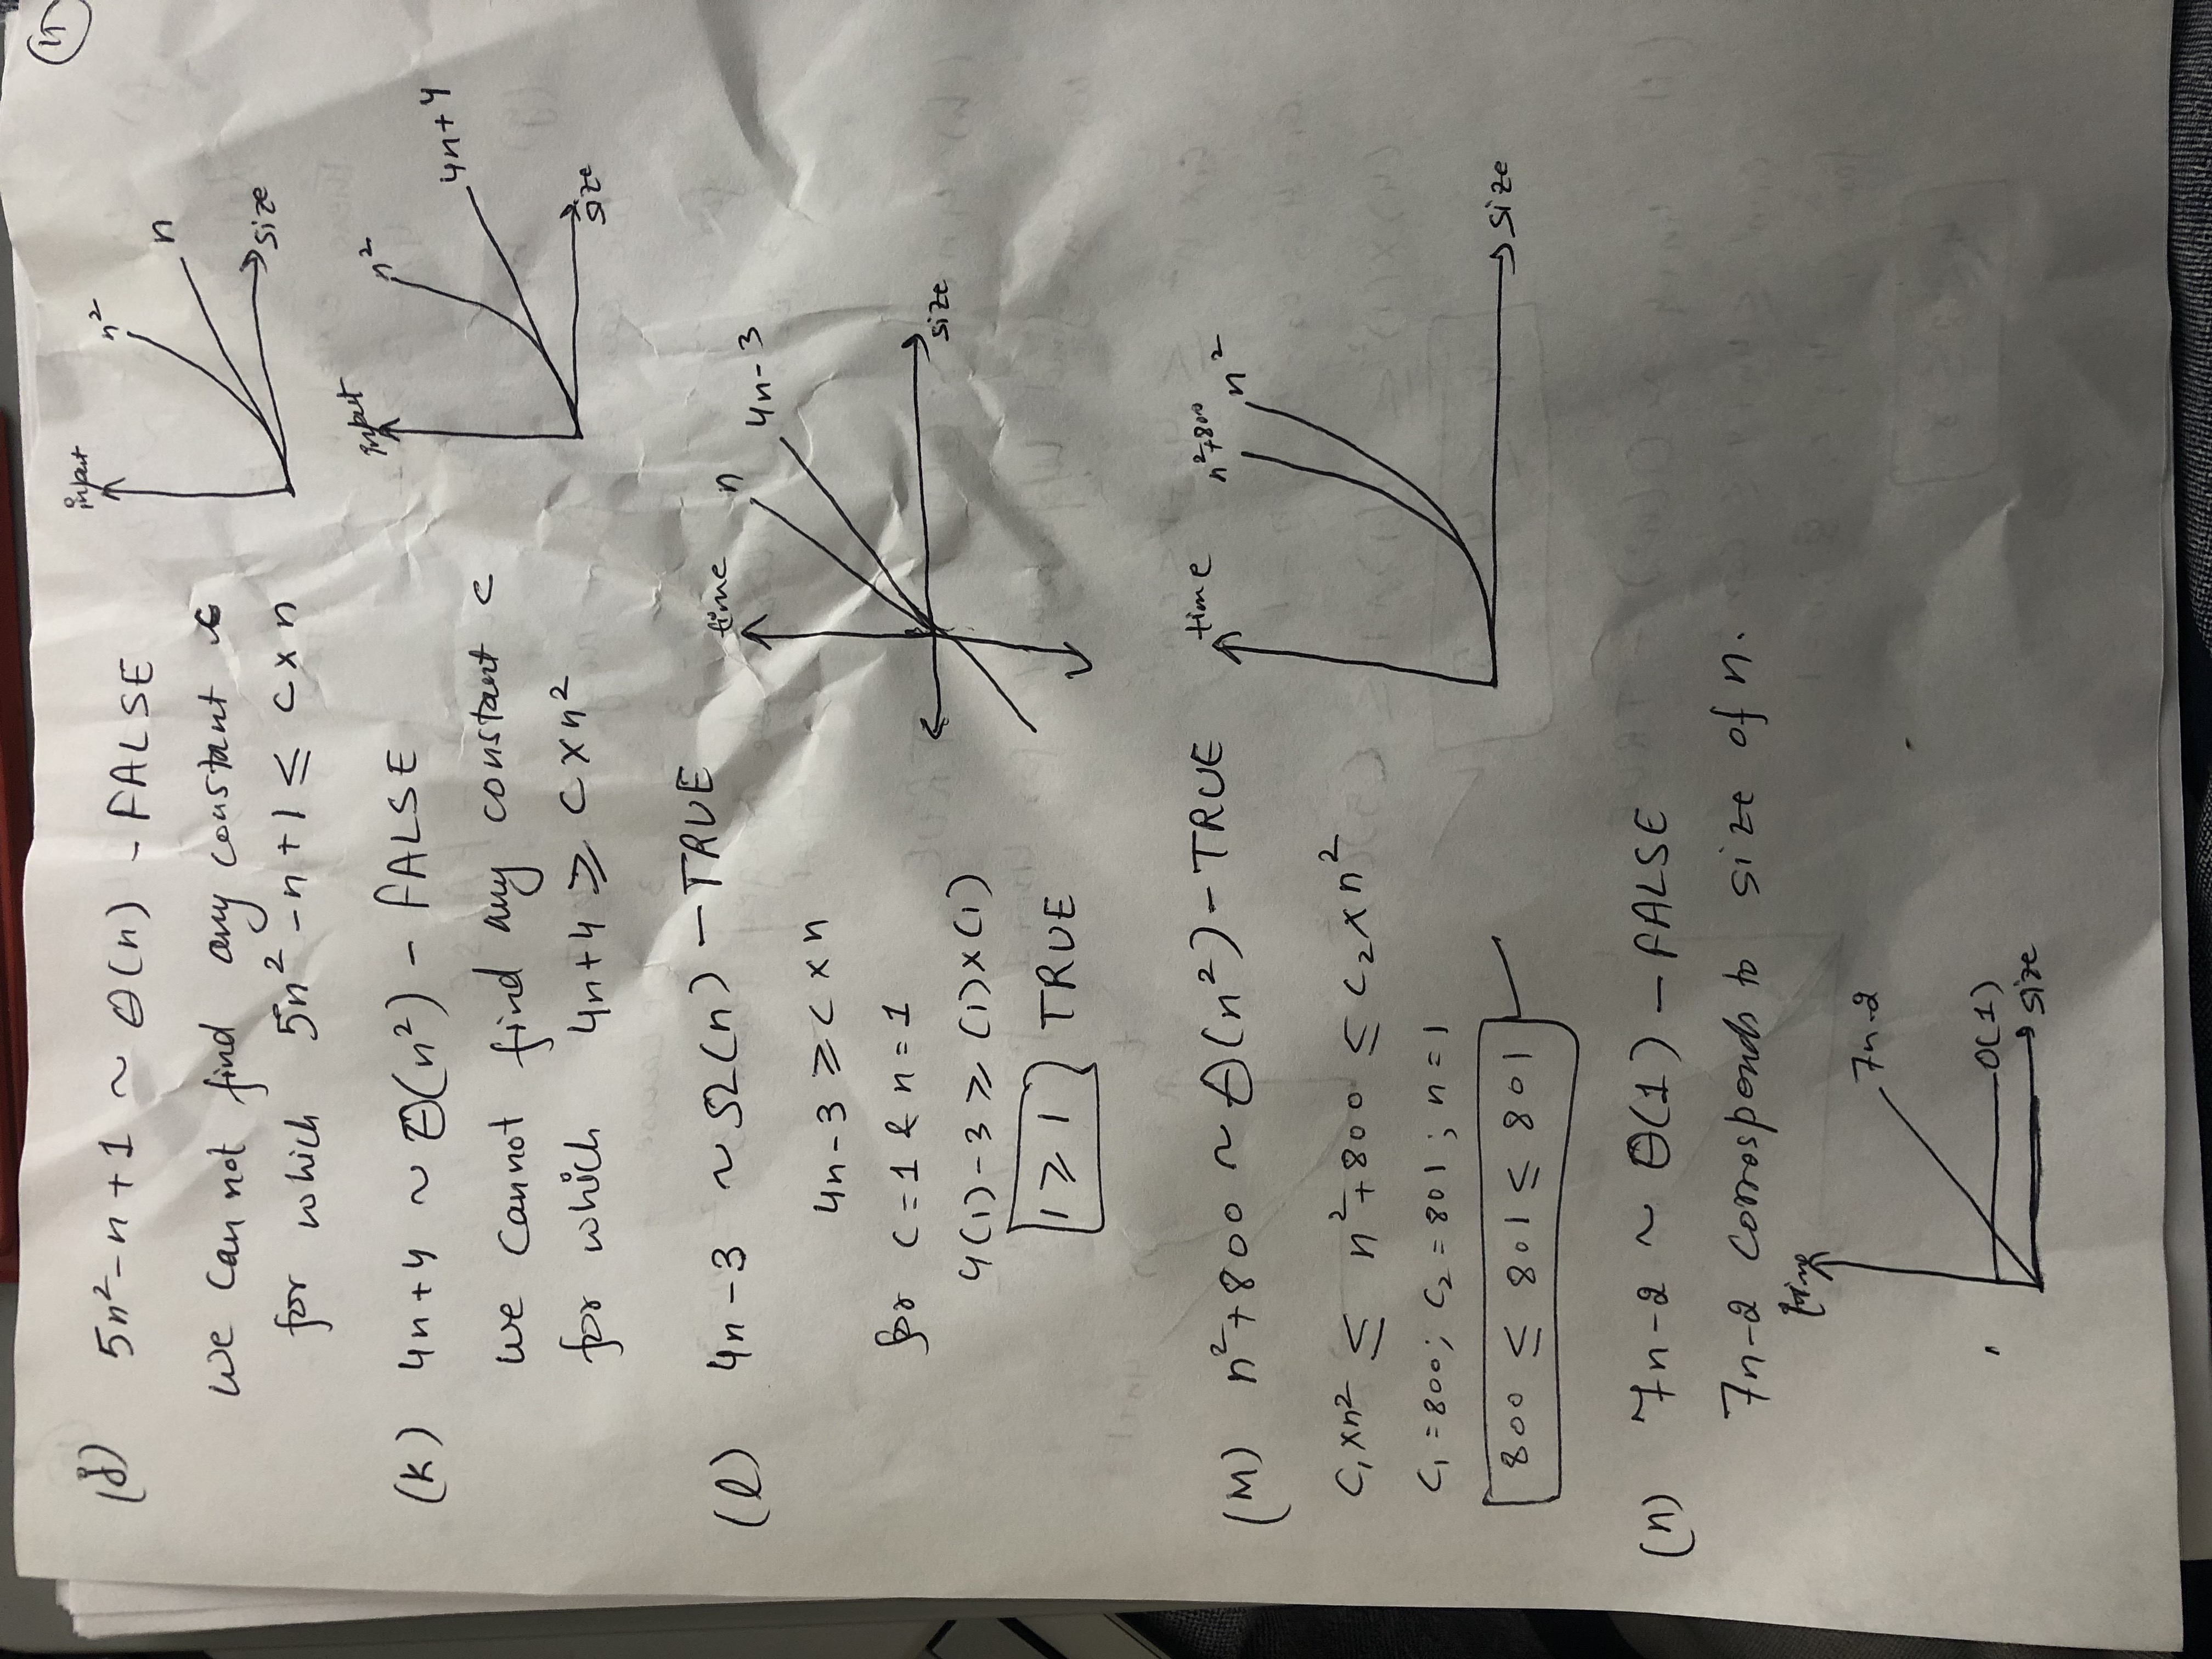 (j) 5n²-n+1 ~ Θ(n) - FALSE
We can not find any constant c
for which 5n²-n+1 ≤ c×n
input
n²
n
size
(K) 4n+4 ~ Θ(n²) - FALSE
we cannot find any constant c
for which 4n+4 ≥ c×n²
Input
n²
4n+4
size
(l) 4n-3 ~ Ω(n) - TRUE
4n-3 ≥ c×n
for c=1 & n=1
4(1)-3 ≥ (1)×(1)
1 ≥ 1 TRUE
time
n
4n-3
size
(M) n²+800 ~ Θ(n²) - TRUE
C₁×n² ≤ n²+800 ≤ C₂×n²
C₁=800; C₂=801; n=1
800 ≤ 801 ≤ 801
time
n²+800
n²
size
(n) 7n-2 ~ Θ(1) - FALSE
7n-2 corresponds to size of n.
time
7n-2
O(1)
size